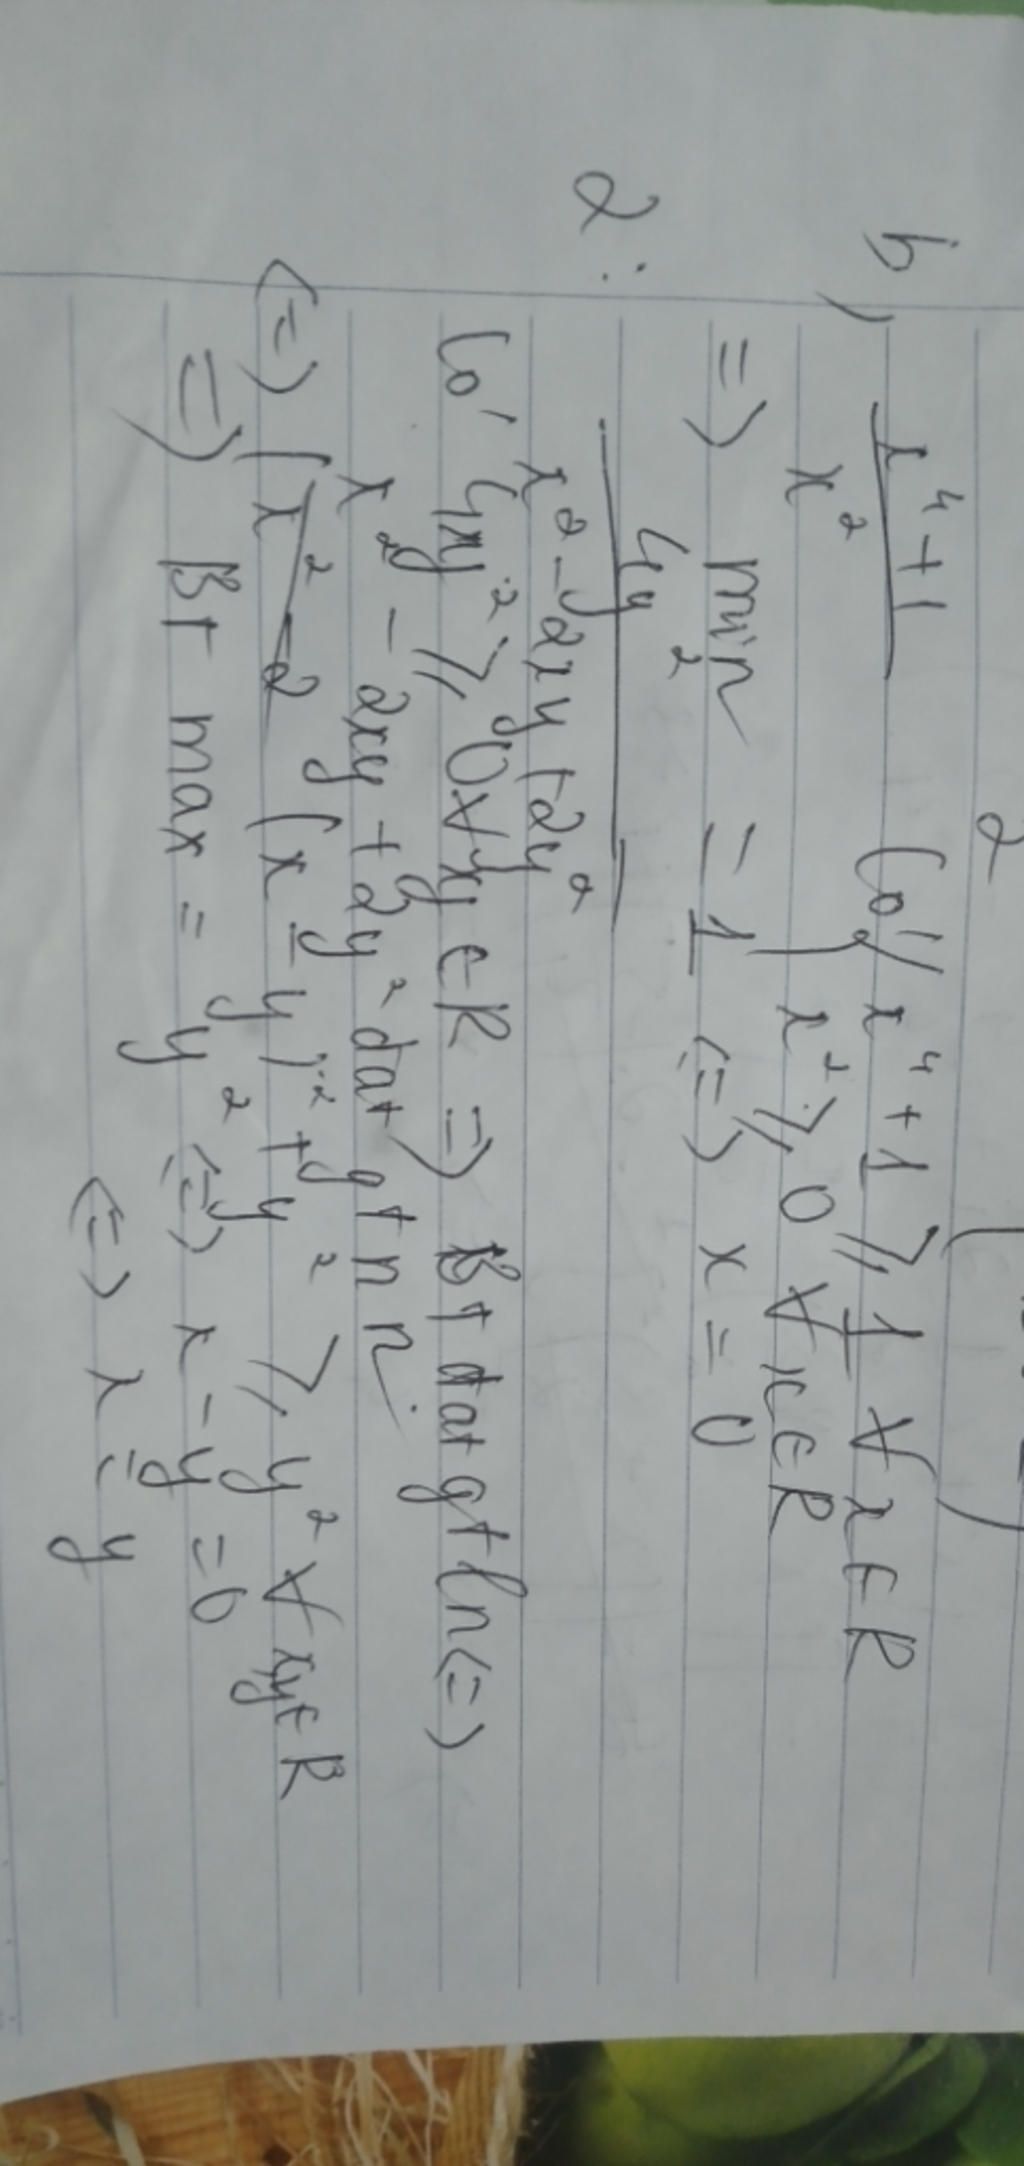 2
b) x⁴+1 Có x⁴+1 ≥ 1 ∀ x ∈ R
x² x² ≥ 0 ∀ x ∈ R
=> min = 1 <=> x = 0
2: 4y²
x²-2xy+2y²
Có 4y² ≥ 0 ∀ xy ∈ R => BT đạt gt ln <=>
x² - 2xy + 2y² đạt gt n n
<=> (x - y)² + y² ≥ y² ∀ xy ∈ R
=> BT max = y² <=> x - y = 0
<=> x = y